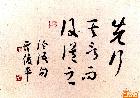 先行
其言而
後從之
論語句